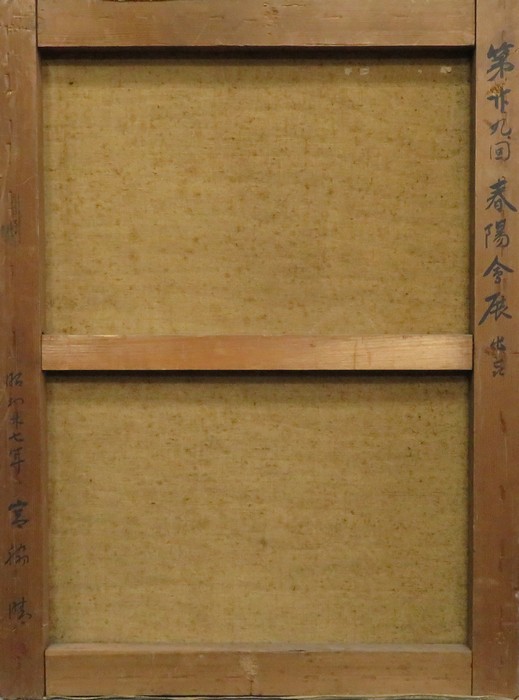 第廿九回 春陽会展 出品
昭和廿七年 宮脇晴